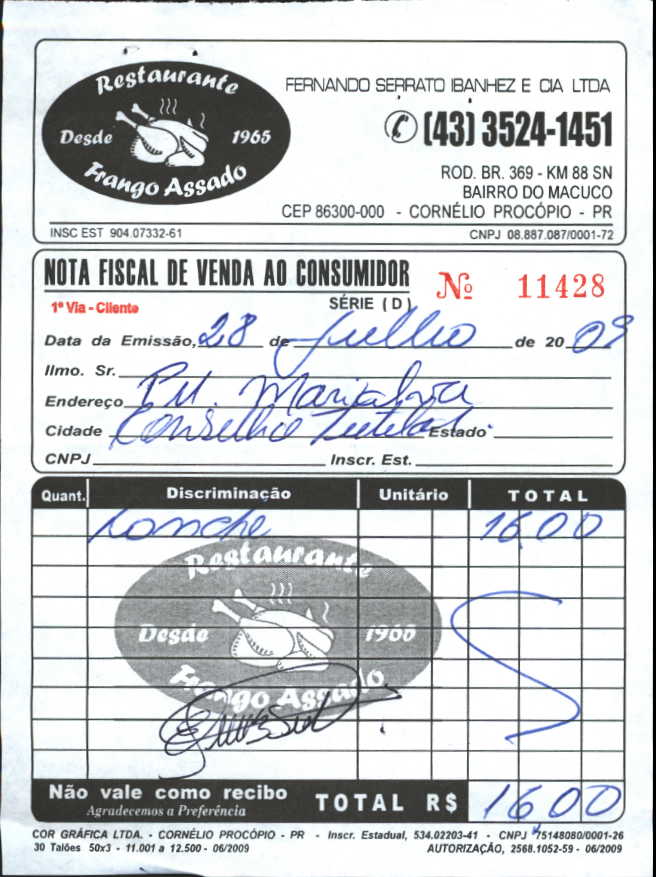 Restaurante
Desde 1965
Frango Assado
FERNANDO SERRATO IBANHEZ E CIA LTDA
(43) 3524-1451
ROD. BR. 369 - KM 88 SN
BAIRRO DO MACUCO
CEP 86300-000 - CORNÉLIO PROCÓPIO - PR
INSC EST 904.07332-61 CNPJ 08.887.087/0001-72
NOTA FISCAL DE VENDA AO CONSUMIDOR
SÉRIE ( D )
Nº 11428
1ª Via - Cliente
Data da Emissão, 28 de Julho de 20 09
Ilmo. Sr.
Endereço P.M. Marialva
Cidade Conselho Tutelar Estado
CNPJ Inscr. Est.
Quant. Discriminação Unitário TOTAL
Lanche 16,00
Restaurante
Desde 1965
Frango Assado
Não vale como recibo
Agradecemos a Preferência
TOTAL R$ 16,00
COR GRÁFICA LTDA. - CORNÉLIO PROCÓPIO - PR - Inscr. Estadual, 534.02203-41 - CNPJ 75148080/0001-26
30 Talões 50x3 - 11.001 a 12.500 - 06/2009 AUTORIZAÇÃO, 2568.1052-59 - 06/2009